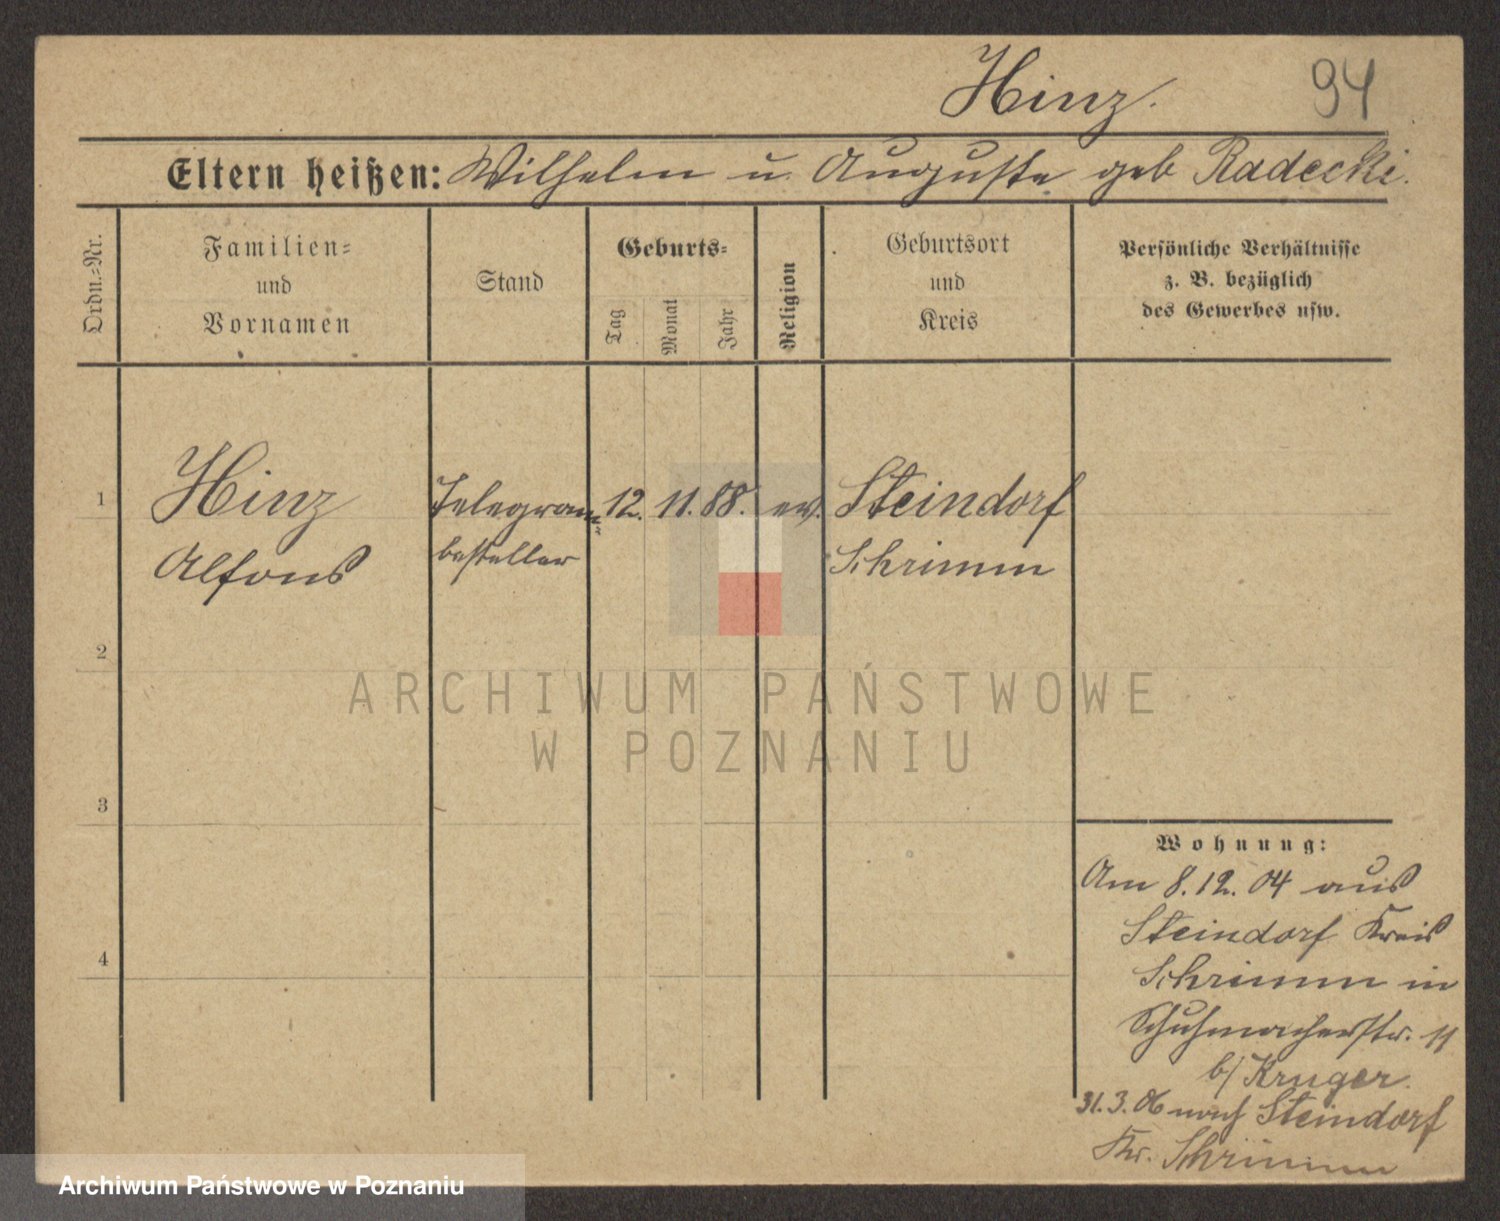 Hinz.
94
Eltern heißen: Wilhelm u. Auguste geb Radecki.
Ordn.=Nr.
Familien=
und
Vornamen
Stand
Geburts=
Tag
Monat
Jahr
Religion
Geburtsort
und
Kreis
Persönliche Verhältnisse
z. B. bezüglich
des Gewerbes usw.
1
Hinz Telegram= 12. 11. 88. ev. Steindorf
Alfons besteller Schrimm
2
3
4
Wohnung:
Am 8.12.04 aus
Steindorf Kreis
Schrimm in
Schuhmacherstr. 11
b/ Kruger.
31.3.06 nach Steindorf
Kr. Schrimm
ARCHIWUM PAŃSTWOWE
W POZNANIU
Archiwum Państwowe w Poznaniu